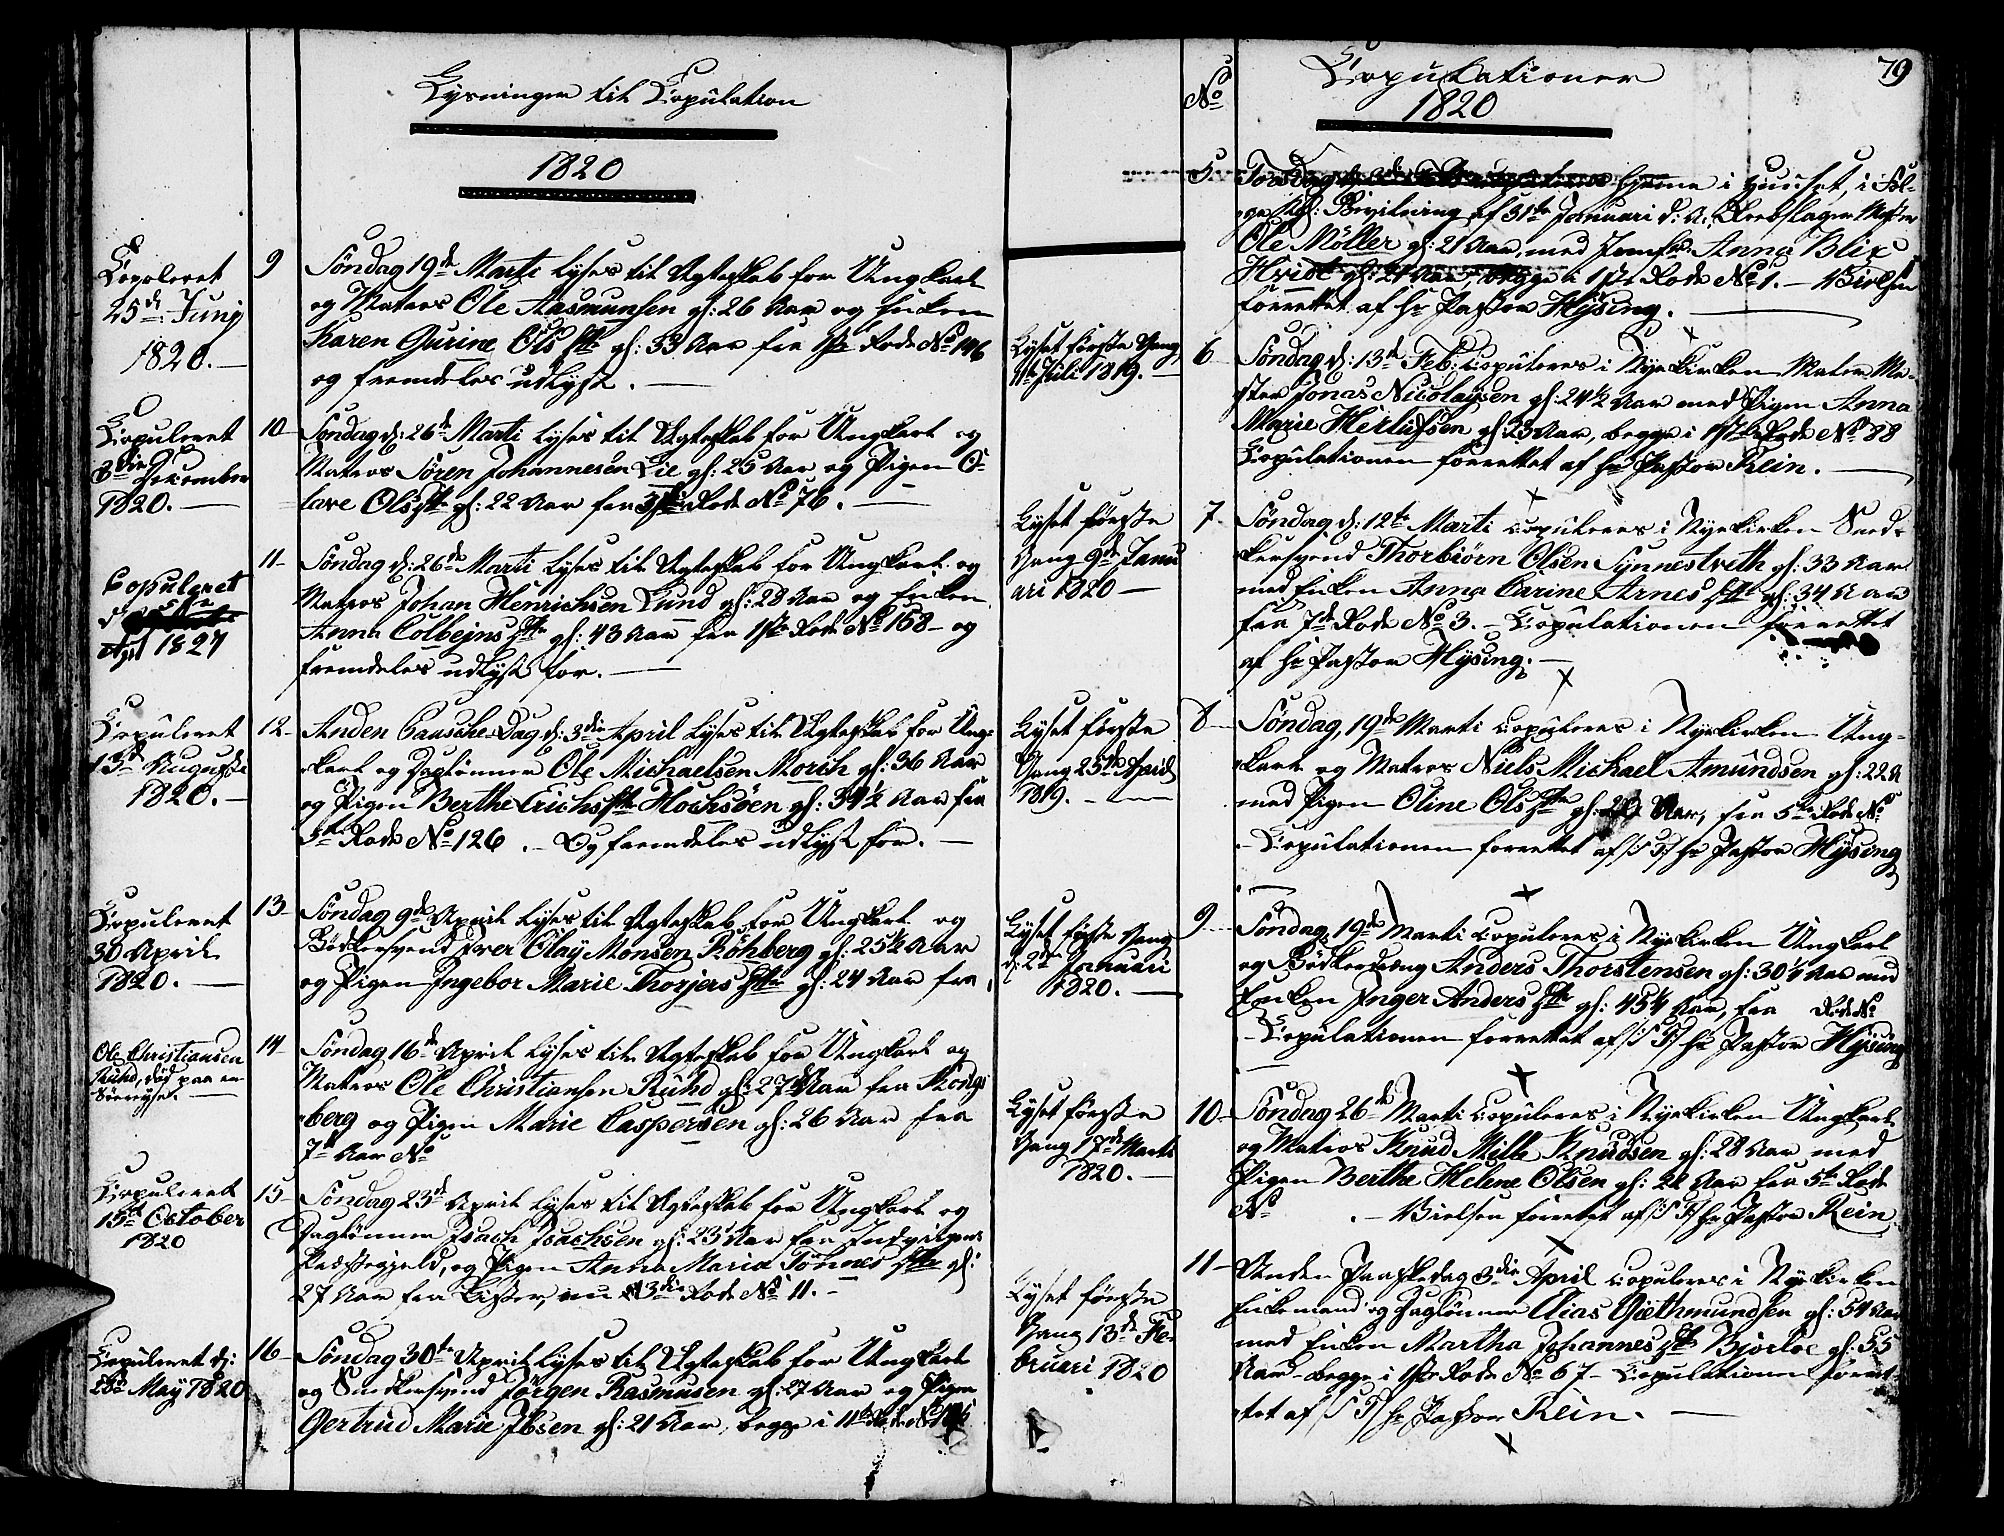 Lysninger til Copulation
1820
Copuleret
25de Junÿ
1820. —
9
Söndag 19de Marti lyses til Ægteskab for Ungkarl
og Matros Ole Aasmunsen gl: 26 Aar og Enken
Karen Gurine Olsdtr gl: 33 Aar fra 1ste Rode No 146
og fremdeles udlyst. —
Copuleret
3die December
1820. —
10
Söndag d: 26de Marti lyses til Ægteskab for Ungkarl og
Matros Sören Johannesen Lie gl: 25 Aar og Pigen O-
lave Olsdtr gl: 22 Aar fra Rode No 76. —
Copuleret
1827
11
Söndag d: 26de Marti lyses til Ægteskab for Ungkarl og
Matros Johan Henrichsen Lund gl: 28 Aar og Enken
Anna Colbejnsdtr gl: 43 Aar fra 1ste Rode No 158 - og
fremdeles udlyst for. —
Copuleret
13de Augusti
1820. —
12
Anden Paaske Dag d: 3die April lyses til Ægteskab for Ung-
karl og Daglönner Ole Michaelsen Morich gl: 36 Aar
og Pigen Berthe Erichsdtr Hochsöen gl: 34½ Aar fra
5te Rode No 126. - Og fremdeles udlyst for. —
Copuleret
30 April
1820. —
13
Söndag 9de April lyses til Ægteskab for Ungkarl og
Bödkersvend Iver Olay Monsen Röhberg gl: 25½ Aar
og Pigen Ingebor Marie Thorjersdtr gl: 24 Aar fra
Ole Christiansen
Rund, död paa en
Söereyse. —
14
Söndag 16de April lyses til Ægteskab for Ungkarl og
Matros Ole Christiansen Rund gl: 27 Aar fra Kongs
berg og Pigen Marie Caspersen gl: 26 Aar fra
7de Aar No
Copuleret
15de October
1820
15
Söndag 23de April lyses til Ægteskab for Ungkarl og
Daglönner Isach Isachsen gl: 23 Aar fra
Præstegjeld, og Pigen Anna Maria Tönnesdtr gl:
27 Aar fra Lister, nu i 3die Rode No 11. -
Copuleret d:
28de May 1820
16
Söndag 30te April lyses til Ægteskab for Ungkarl
og Snedkersvend Jörgen Rasmusen gl: 27 Aar og Pigen
Gertrud Marie Ibsen gl: 21 Aar, begge i 11te Rode No
No
Copulationer
1820
79
5
Torsdag hjemme i Huuset, i Föl-
ge Kgl: Bevilning af 31te Januari d: A: Reebslager Mester
Ole Möller gl: 21 Aar, med Jomfr: Anna Blix
Hvidt gl: 21 Aar, begge i 1ste Rode No 1. - Vielsen
forrettet af Hr Pastor Hÿsing. —
Lyset förste Gang
11te Juli 1819. —
6
Söndag d: 13de Feb: Copuleres i Nykirken Maler Me-
ster Jonas Nicolaysen gl: 24½ Aar med Pigen Anna
Marie Herlufsen gl: 23 Aar, begge i 17de Rode No 88
Copulationen forrettet af Hr Pastor Rein. —
Lyset förste
Gang 9de Janu
ari 1820 —
7
Söndag d: 12te Marti Copuleres i Nykirken Sned-
kersvend Thorbiörn Olsen Synnestveth gl: 33 Aar
med Enken Anna Carine Arnesdtr gl: 34 Aar
fra 7de Rode No 3. - Copulationen forrettet
af Hr Pastor Hÿsing. —
Lyset förste
Gang 25de April
1819. —
8
Söndag, 19de Marti Copuleres i Nykirken Ung-
karl og Matros Niels Michael Amundsen gl: 22 A
med Pigen Oline Olsdtr gl: Aar, fra 5te Rode No
- Copulationen forrettet af S T Hr Pastor Hÿsing
Lyset förste Gang
d: 2den Januari
1820. —
9
Söndag, 19de Marti Copuleres i Nykirken Ungkarl
og Bödkerdreng Anders Thorstensen gl: 30½ Aar med
Enken Inger Andersdtr gl: 45¼ Aar, fra Rode No
- Copulationen forrettet af S T Hr Pastor Hÿsing
Lyset förste
Gang 17de Marti
1820. —
10
Söndag 26de Marti Copuleres i Nykirken Ungkarl
og Matros Knud Mille Knudsen gl: 28 Aar med
Pigen Berthe Helene Olsen gl: 22 Aar fra 5te Rode
No . - Vielsen forrettet af S T Hr Pastor Rein
Lyset förste
Gang 13de Fe-
bruari 1820
11
Anden Paaskedag 3die April Copuleres i Nykirken
Enkemand og Daglönner Elias Giethmundsen gl: 54 Aar
med Enken Martha Johannesdtr Bjorloe gl: 55
Aar - begge i 1ste Rode No 67 - Copulationen forret
tet af S T Hr Pastor Rein. —